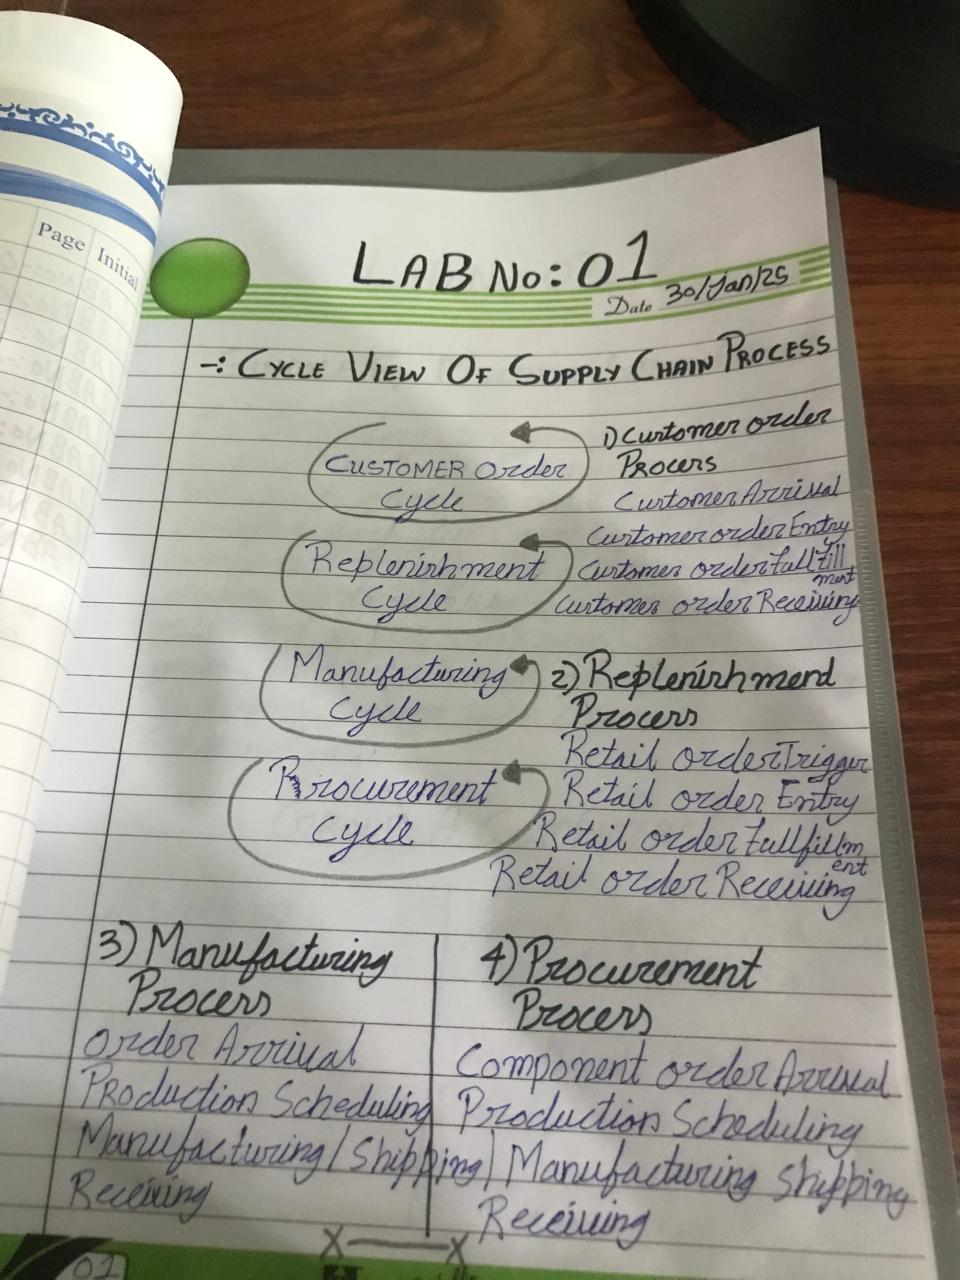 Page Initial
LAB No: 01
Date 30/Jan/25
-: CYCLE VIEW OF SUPPLY CHAIN PROCESS
CUSTOMER Order
Cycle
Replenishment
Cycle
Manufacturing
Cycle
Procurement
Cycle
1) Customer order
Process
Customer Arrival
Customer order Entry
Customer order Fullfill
ment
Customer order Receiving
2) Replenishment
Process
Retail order Trigger
Retail order Entry
Retail order Fullfillm
ent
Retail order Receiving
3) Manufacturing
Process
Order Arrival
Production Scheduling
Manufacturing/Shipping
Receiving
4) Procurement
Process
Component order Arrival
Production Scheduling
Manufacturing Shipping
Receiving
X—X
01